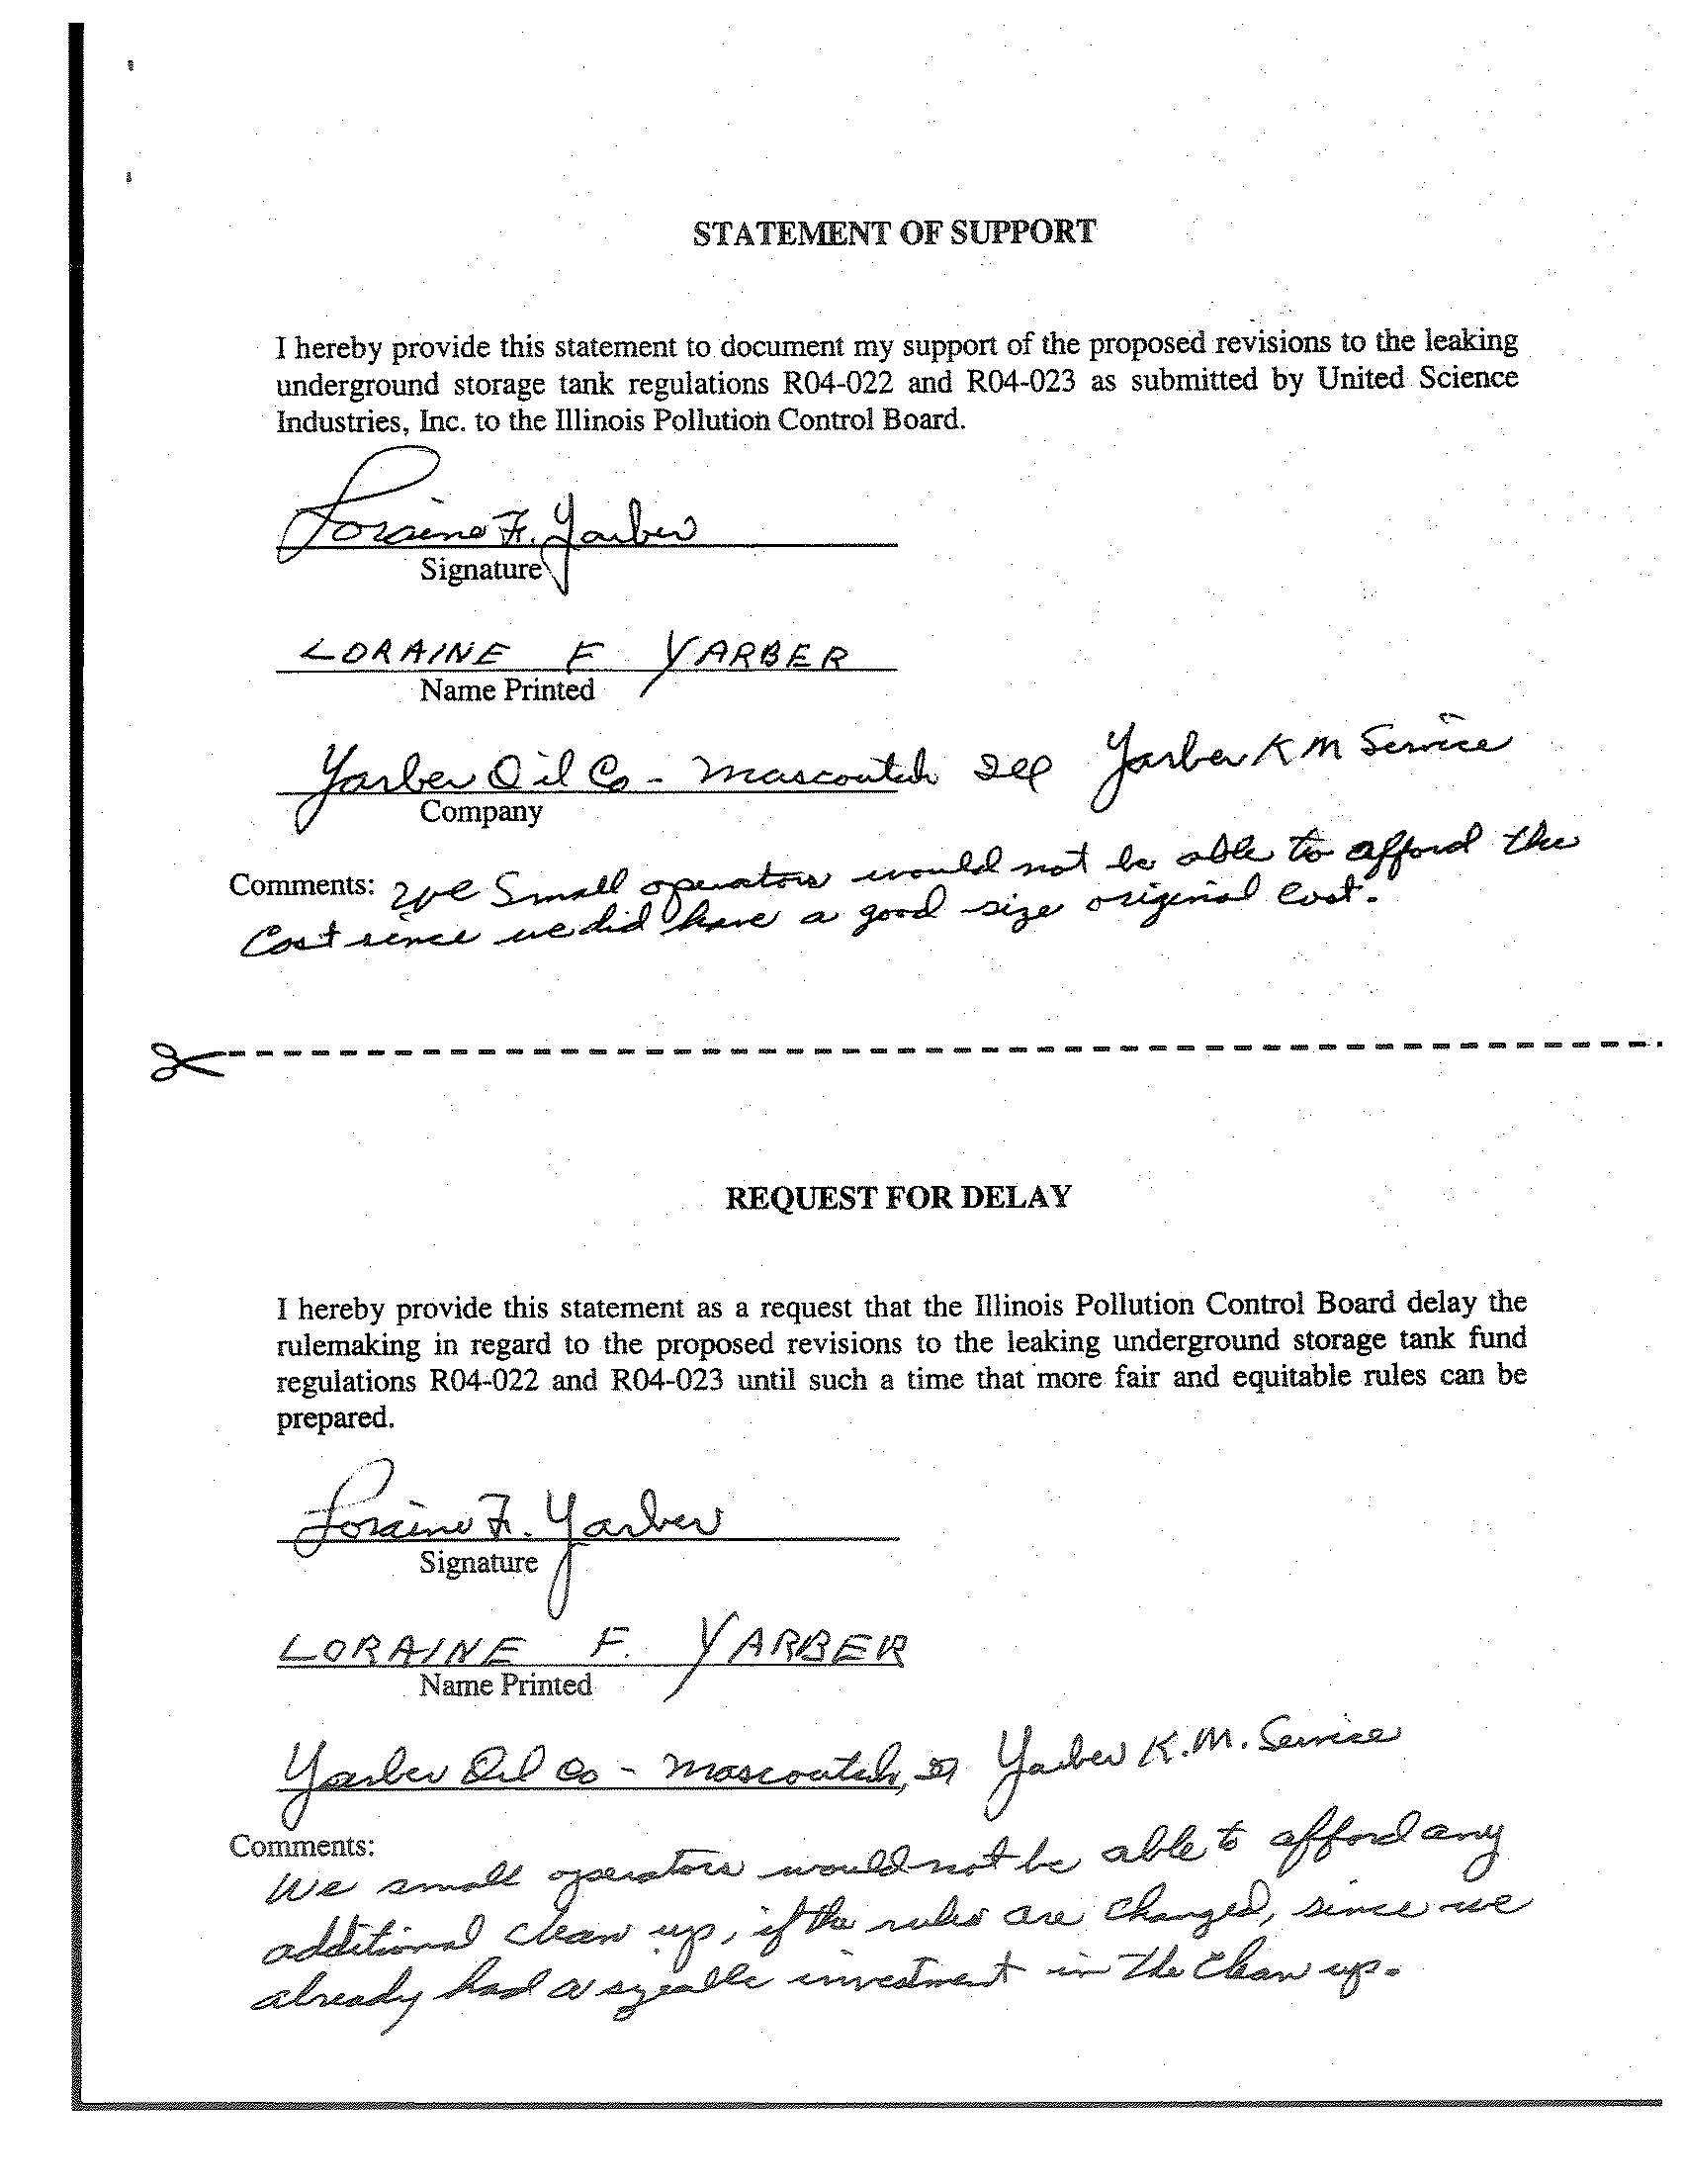 STATEMENT OF SUPPORT
I hereby provide this statement to document my support of the proposed revisions to the leaking
underground storage tank regulations R04-022 and R04-023 as submitted by United Science
Industries, Inc. to the Illinois Pollution Control Board.
Loraine F. Yarber
Signature
LORAINE F YARBER
Name Printed
Yarber Oil Co - Mascoutah Ill Yarber K M Service
Company
Comments: We Small operators would not be able to afford the
Cost since we did have a good size original cost.
REQUEST FOR DELAY
I hereby provide this statement as a request that the Illinois Pollution Control Board delay the
rulemaking in regard to the proposed revisions to the leaking underground storage tank fund
regulations R04-022 and R04-023 until such a time that more fair and equitable rules can be
prepared.
Loraine F. Yarber
Signature
LORAINE F. YARBER
Name Printed
Yarber Oil Co - Mascoutah, Il Yarber K.M. Service
Comments:
We small operators would not be able to afford any
additional clean up, if the rules are changed, since we
already had a sizeable investment in the clean up.